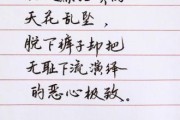 天花乱坠，
脱下裤子却把
无耻下流演绎
的恶心极致。